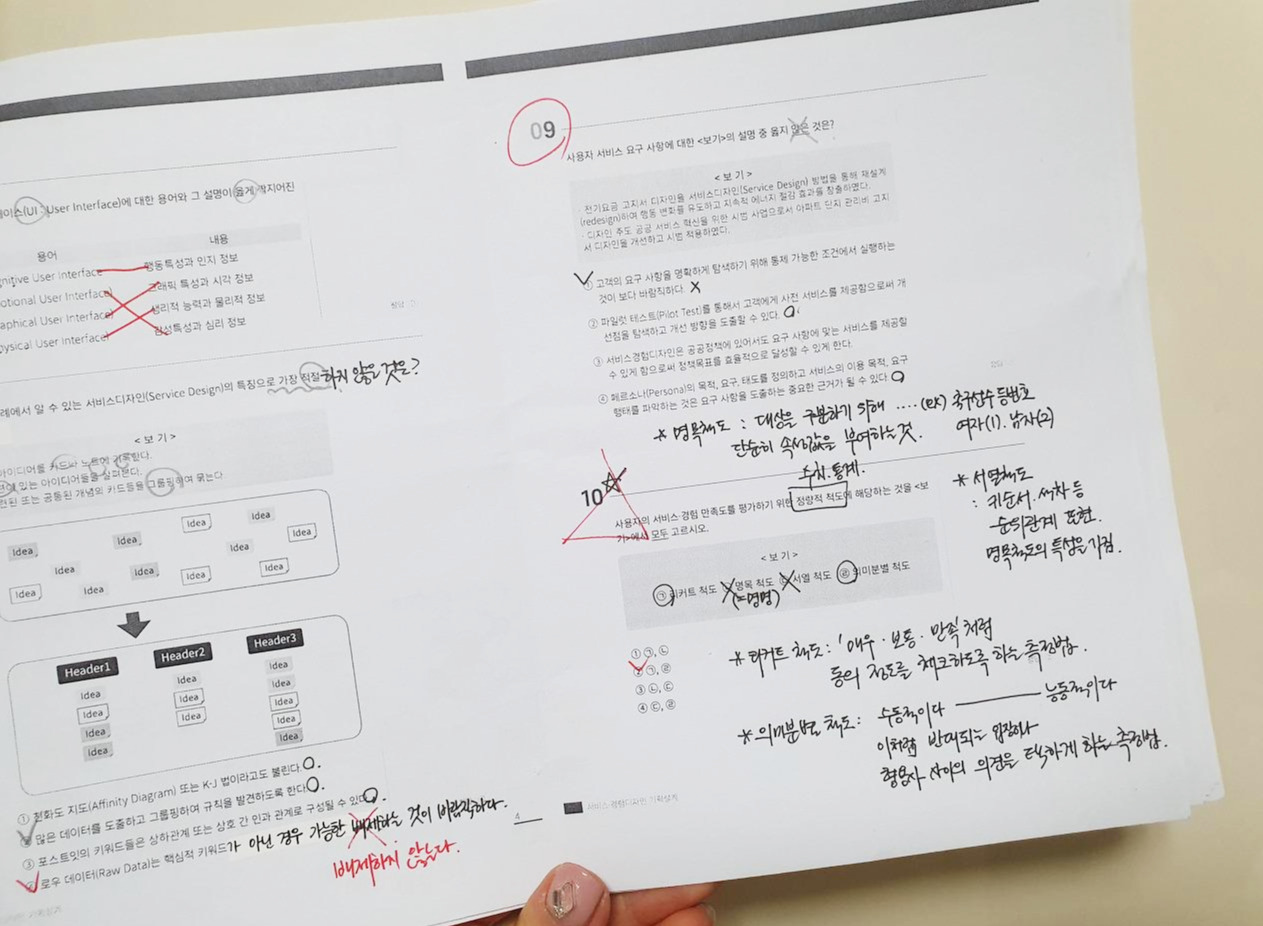 이스(UI : User Interface)에 대한 용어와 그 설명이 옳게 짝지어진
용어
내용
gnitive User Interface
행동특성과 인지 정보
otional User Interface)
그래픽 특성과 시각 정보
aphical User Interface)
생리적 능력과 물리적 정보
ysical User Interface)
감성특성과 심리 정보
정답
례에서 알 수 있는 서비스디자인(Service Design)의 특징으로 가장 적절하지 않은 것은?
< 보 기 >
아이디어를 카드나 노트에 기록한다.
있는 아이디어들을 살펴본다.
련된 또는 공통된 개념의 카드들을 그룹핑하여 묶는다.
Idea
Idea
Idea
Idea
Idea
Idea
Idea
Idea
Idea
Idea
Idea
Header1
Header2
Header3
Idea
Idea
Idea
Idea
Idea
Idea
Idea
Idea
Idea
Idea
Idea
Idea
① 친화도 지도(Affinity Diagram) 또는 K-J 법이라고도 불린다.
많은 데이터를 도출하고 그룹핑하여 규칙을 발견하도록 한다.
③ 포스트잇의 키워드들은 상하관계 또는 상호 간 인과 관계로 구성될 수 있다.
로우 데이터(Raw Data)는 핵심적 키워드가 아닌 경우 가능한 배제하는 것이 바람직하다.
배제하지 않는다.
4
09
사용자 서비스 요구 사항에 대한 <보기>의 설명 중 옳지 않은 것은?
< 보 기 >
· 전기요금 고지서 디자인을 서비스디자인(Service Design) 방법을 통해 재설계
(redesign)하여 행동 변화를 유도하고 지속적 에너지 절감 효과를 창출하였다.
· 디자인 주도 공공 서비스 혁신을 위한 시범 사업으로서 아파트 단지 관리비 고지
서 디자인을 개선하고 시범 적용하였다.
① 고객의 요구 사항을 명확하게 탐색하기 위해 통제 가능한 조건에서 실행하는
것이 보다 바람직하다. X
② 파일럿 테스트(Pilot Test)를 통해서 고객에게 사전 서비스를 제공함으로써 개
선점을 탐색하고 개선 방향을 도출할 수 있다.
③ 서비스경험디자인은 공공정책에 있어서도 요구 사항에 맞는 서비스를 제공할
수 있게 함으로써 정책목표를 효율적으로 달성할 수 있게 한다.
④ 페르소나(Persona)의 목적, 요구, 태도를 정의하고 서비스의 이용 목적, 요구
행태를 파악하는 것은 요구 사항을 도출하는 중요한 근거가 될 수 있다
정답
* 명목척도 : 대상을 구분하기 위해 .... (ex) 축구선수 등번호
단순히 속성값을 부여하는 것. 여자(1). 남자(2)
수치. 통계.
10
사용자의 서비스·경험 만족도를 평가하기 위한 정량적 척도에 해당하는 것을 <보
기>에서 모두 고르시오.
< 보 기 >
㉠ 리커트 척도 ㉡ 명목 척도 ㉢ 서열 척도 ㉣ 의미분별 척도
(=명명)
① ㉠, ㉡
② ㉠, ㉣
③ ㉡, ㉢
④ ㉢, ㉣
* 서열척도
: 키순서. 석차 등
순위관계 표현.
명목척도의 특성을 가짐.
* 리커트 척도 : '매우 · 보통 · 만족' 처럼
동의 정도를 체크하도록 하는 측정법.
* 의미분별 척도 : 수동적이다 능동적이다
이처럼 반대되는 입장이나
형용사 사이의 의견을 택하게 하는 측정법.
서비스·경험디자인 기획설계